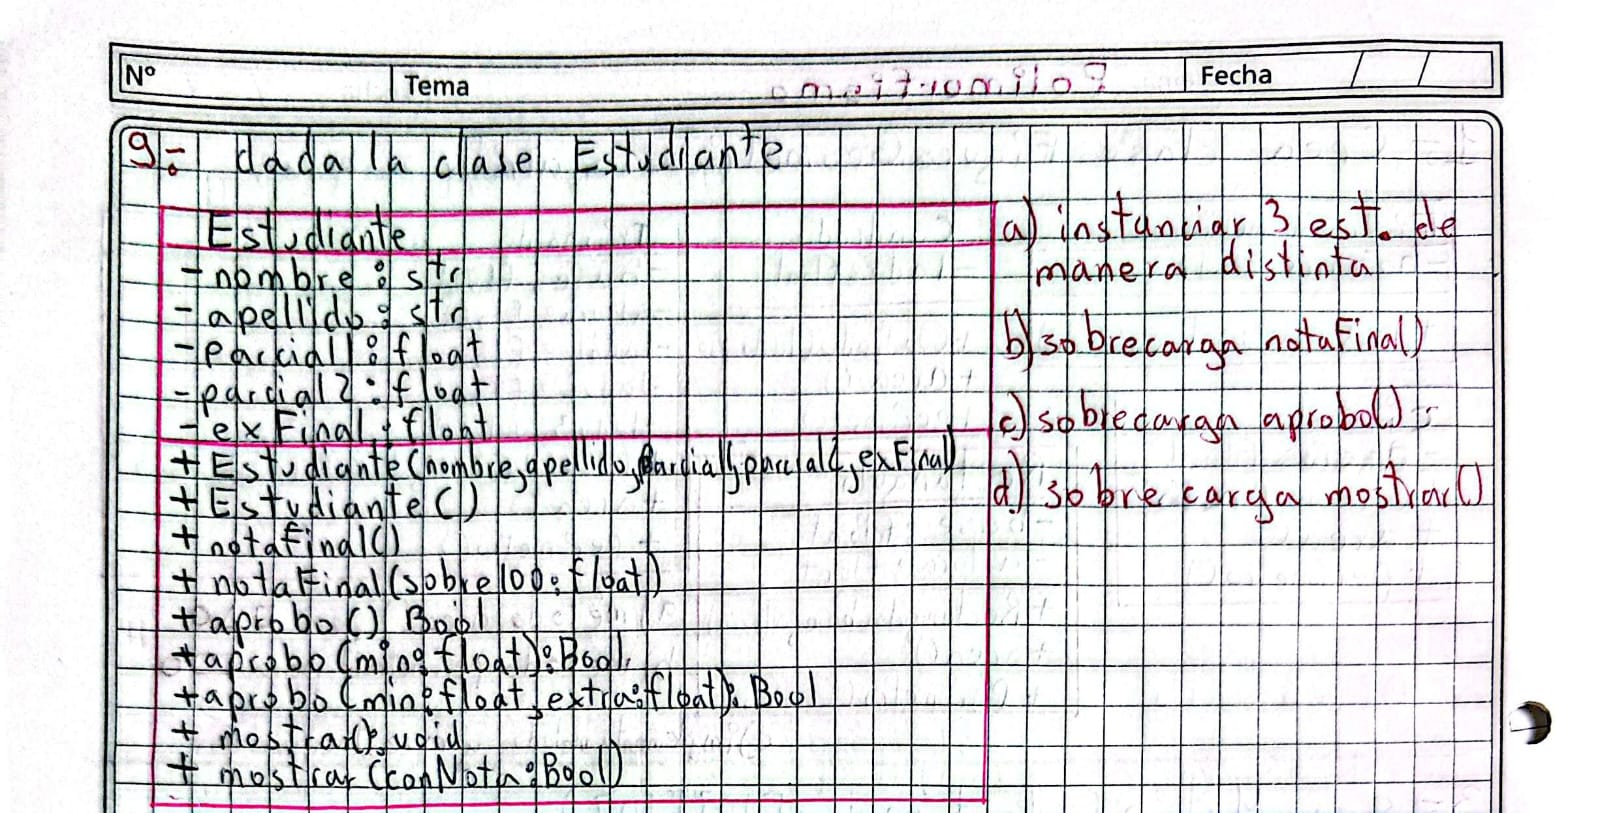 Nº Tema Polimorfismo Fecha / /
9- dada la clase Estudiante
Estudiante
- nombre: str
- apellido: str
- parcial1: float
- parcial2: float
- exFinal: float
+ Estudiante(nombre, apellido, parcial1, parcial2, exFinal)
+ Estudiante()
+ notaFinal()
+ notaFinal(sobre100: float)
+ aprobo() Bool
+ aprobo(min: float): Bool
+ aprobo(min: float, extra: float): Bool
+ mostrar(): void
+ mostrar(conNota: Bool)
a) instanciar 3 est. de
manera distinta
b) sobrecarga notaFinal()
c) sobrecarga aprobo()
d) sobrecarga mostrar()